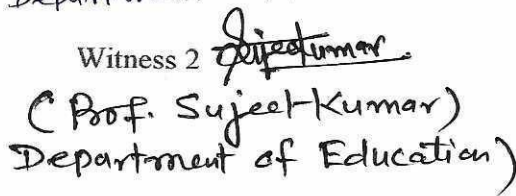 Department
Witness 2 Sujeetkumar.
(Prof. Sujeet Kumar)
Department of Education)